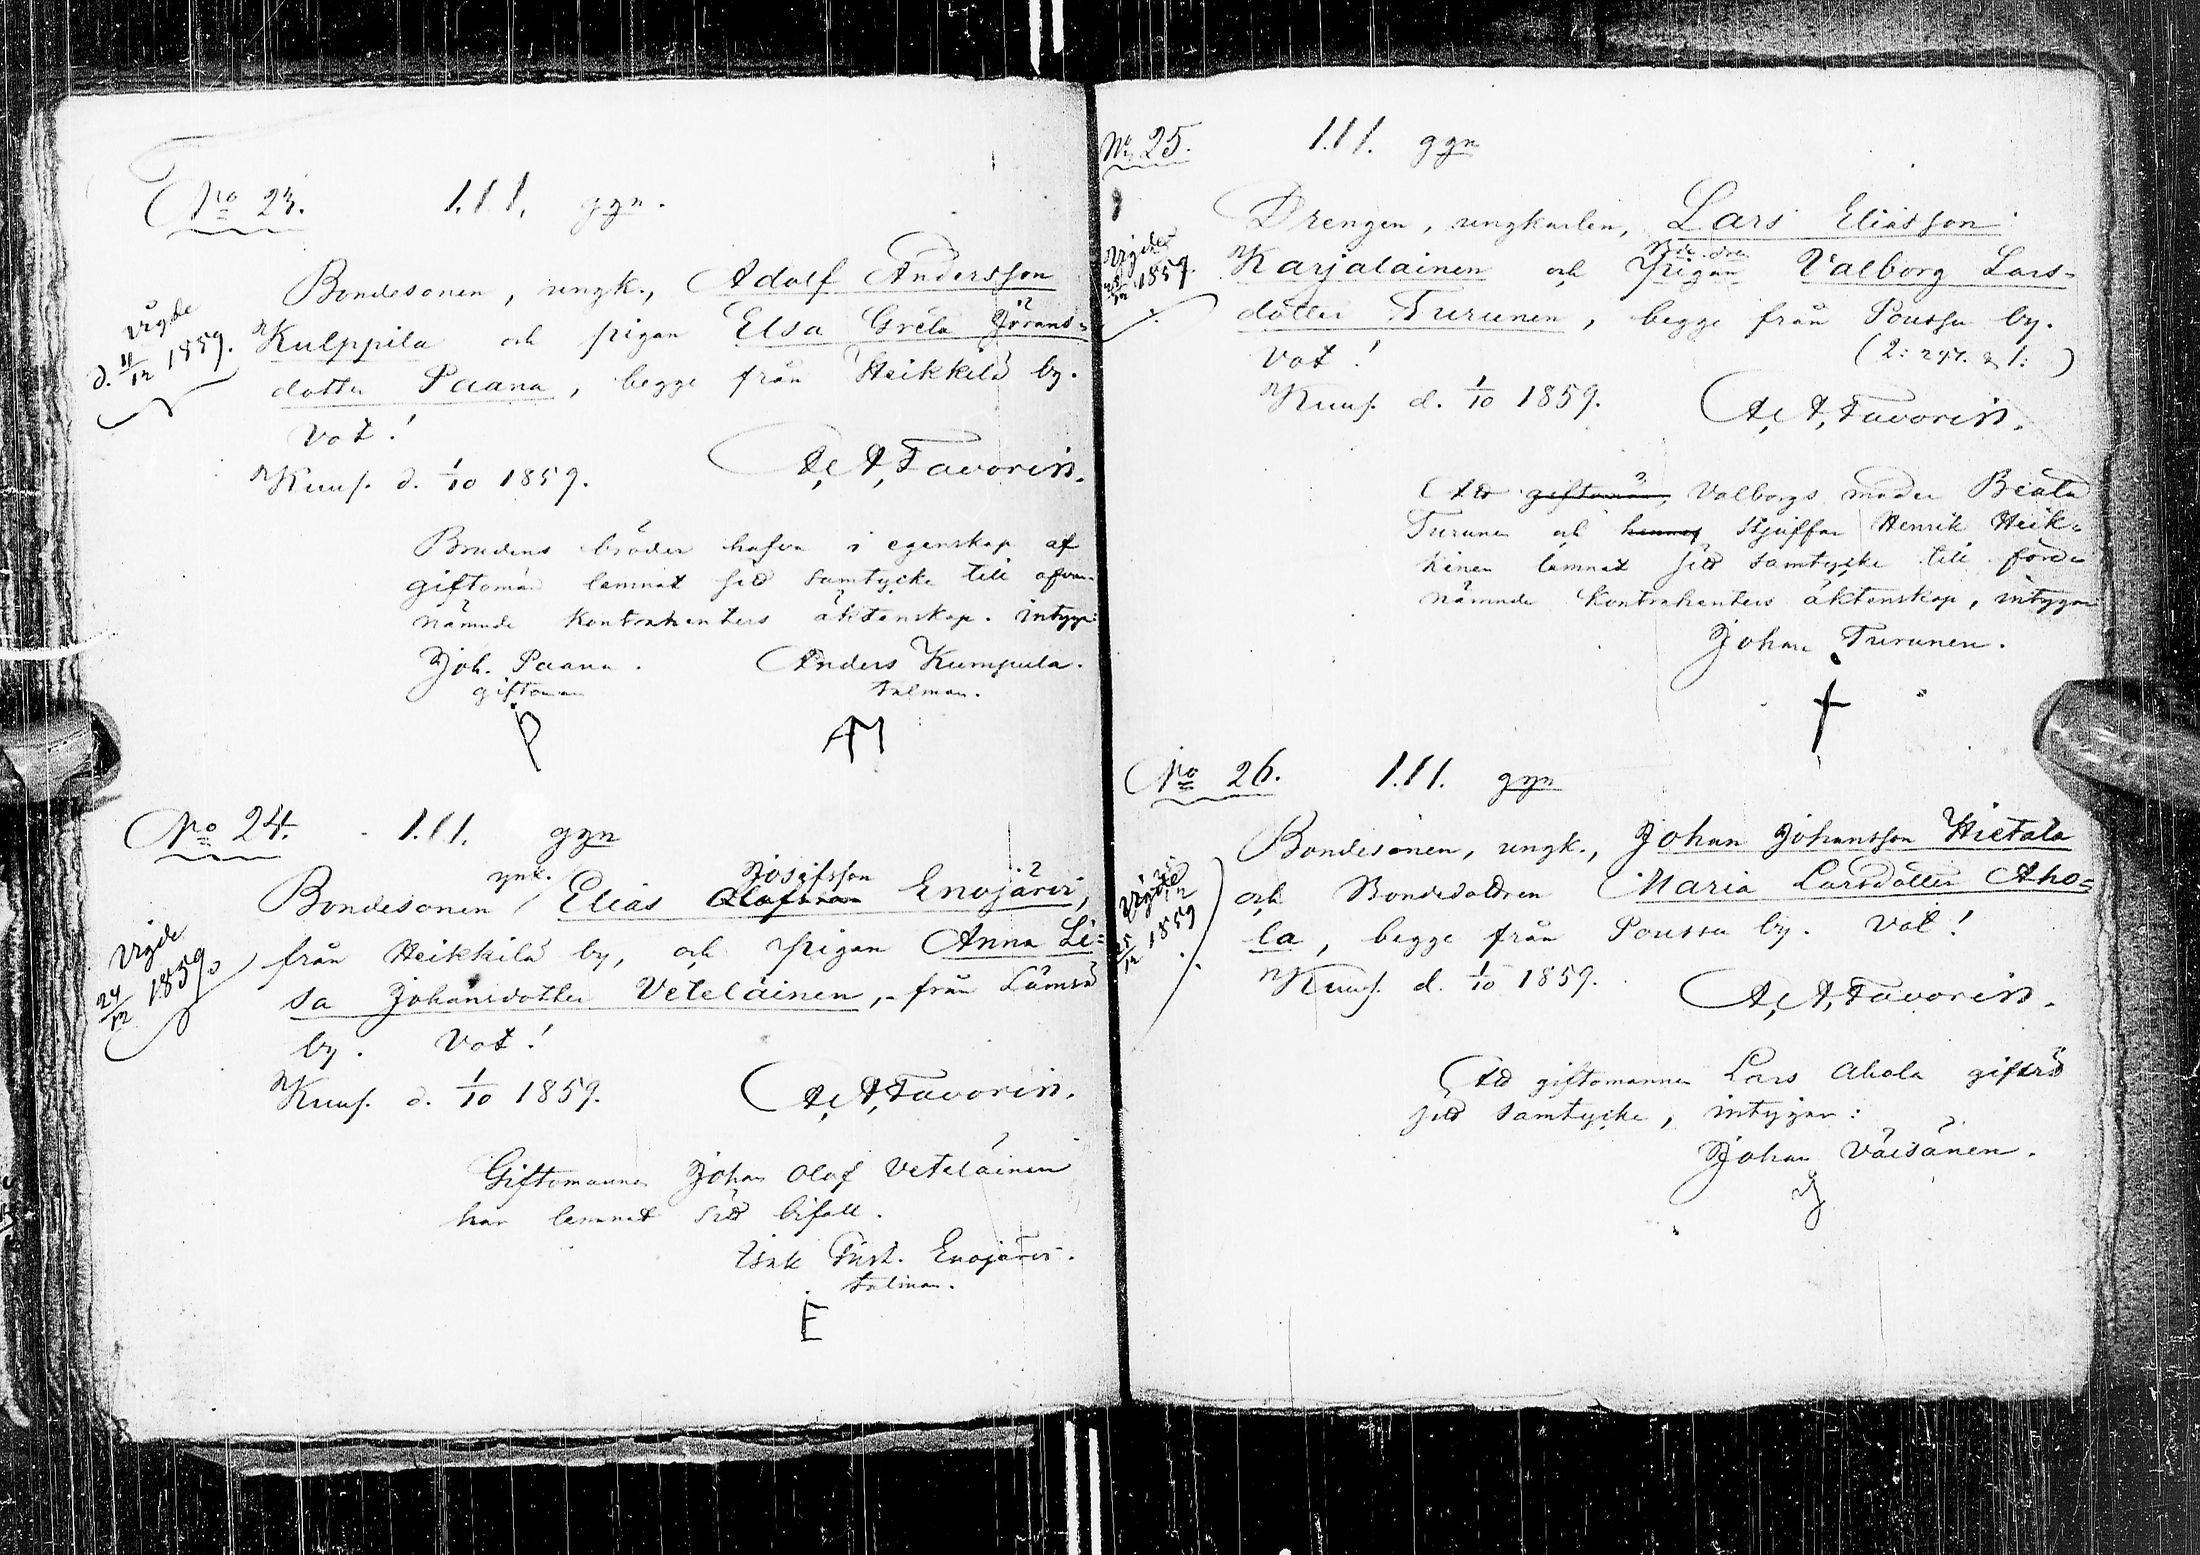 No 23. 1.1.1. ggr.
Bondesonen, ungk., Adolf Andersson
Kulppila och pigan Elsa Greta Jörans-
dotter Paana, begge från Heikkilä by.
Vot!
Kuus. d. 1/10 1859. A. A. Favorin.
Vigde
d. 11/12 1859.
Brudens bröder hafva i egenskap af
giftomän lemnat sitt samtycke till ofvan-
nämnde kontrahenters äktenskap. intyga
Joh. Paana. Anders Kumpula.
giftoman talman.
P AM
No 24. 1.1.1. ggr
ynk. Josefsson
Bondesonen Elias Olofsson Enojärvi,
från Heikkilä by, och pigan Anna Li-
sa Johansdotter Veteläinen, från Lämsä
by. Vot!
Kuus. d. 1/10 1859. A. A. Favorin.
Vigde
24/12 1859.
Giftomannen Johan Olof Veteläinen
har lemnat sitt bifall.
Isak Enojärvi.
talman.
E
No 25. 1.1.1. ggr
Drengen, ungkarlen, Lars Eliasson
Karjalainen och Pigan Valborg Lars-
dotter Turunen, begge från Poussu by.
Vot! (2: 247. & 1:)
Kuus. d. 1/10 1859. A. A. Favorin.
Vigde
25/12 1859.
Att giftomän, Valborgs moder Beata
Turunen och hennes styffar Henrik Heik-
kinen lemnat sitt samtycke till förde
nämnde kontrahenters äktenskap, intygar
Johan Turunen.
No 26. 1.1.1. ggr
Bondesonen, ungk., Johan Johansson Hietala
och Bondedottren Maria Larsdotter Aho-
la, begge från Poussu by. Vot!
Kuus. d. 1/10 1859. A. A. Favorin.
Vigde
25/12 1859
Att giftomannen Lars Ahola gifvit
sitt samtycke, intygar:
Johan Väisänen.